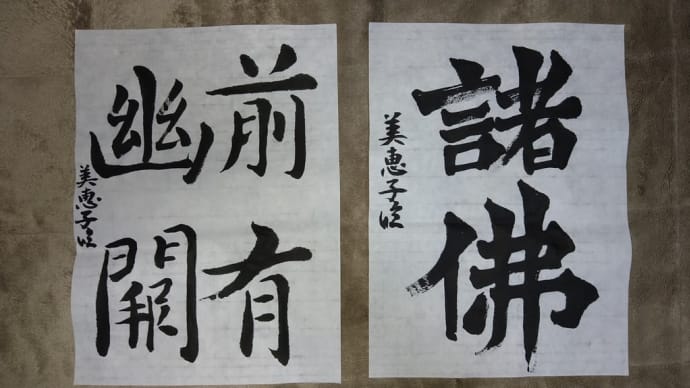 諸佛
美恵子臨
前有
幽闕
美恵子臨